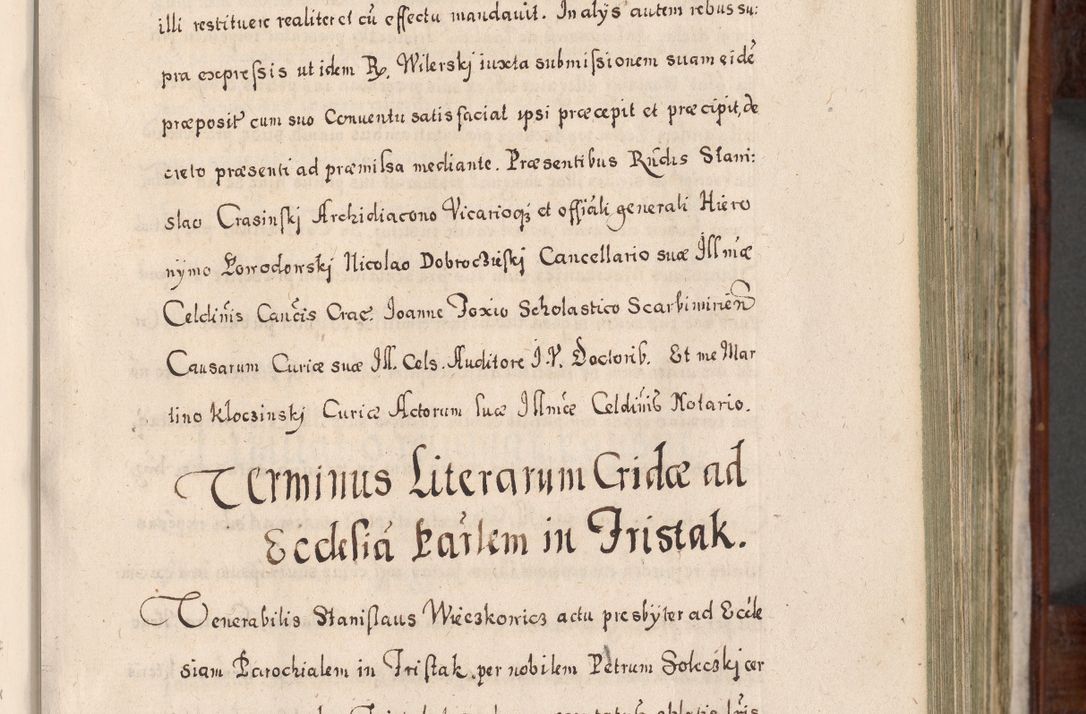 illi restituere realiter et cū effectu mandauit. In alijs autem rebus su:
pra expressis ut idem R. Wilerskj iuxta submissionem suam eidē
præposit̄ cum suo Conuentu satisfaciat ipsi præcepit et præcipit, de
creto præsenti ad præmissa mediante. Præsentibus Rñdis Stani:
slao Crasinskj Archidiacono Vicarioq; et offiāli generali Hiero
nymo Powodowskj Nicolao Dobrocżieskj Cancellario suæ Jllmæ
Celdinis Cancis Crac. Joanne Foxio Scholastico Scarbimirien
Causarum Curiæ suæ Jll. Cels. Auditore J.V. Doctorib. Et me Mar
tino Kloczinskj Curiæ Actorum suæ Jllmæ Celdinis Notario.
Terminus Literarum Cridæ ad
Ecclesiā Parlem in Fristak.
Venerabilis Stanislaus Więczkowicz actu presbyter ad Eccle
siam Parochialem in Fristak per nobilem Petrum Soleckj cer